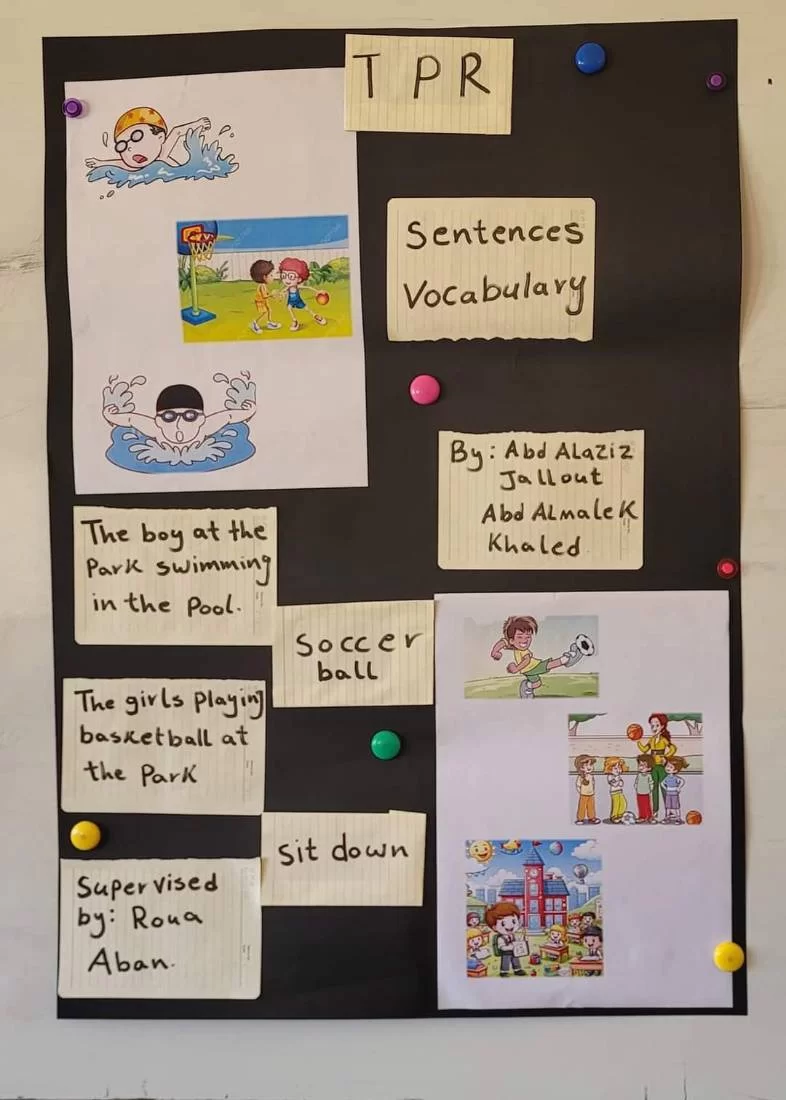 T P R
Sentences
Vocabulary
By: Abd ALaziz
Jallout
Abd ALmaleK
Khaled
The boy at the
Park swimming
in the Pool.
Soccer
ball
The girls Playing
basketball at
the Park
Sit down
Supervised
by: Roua
Aban.